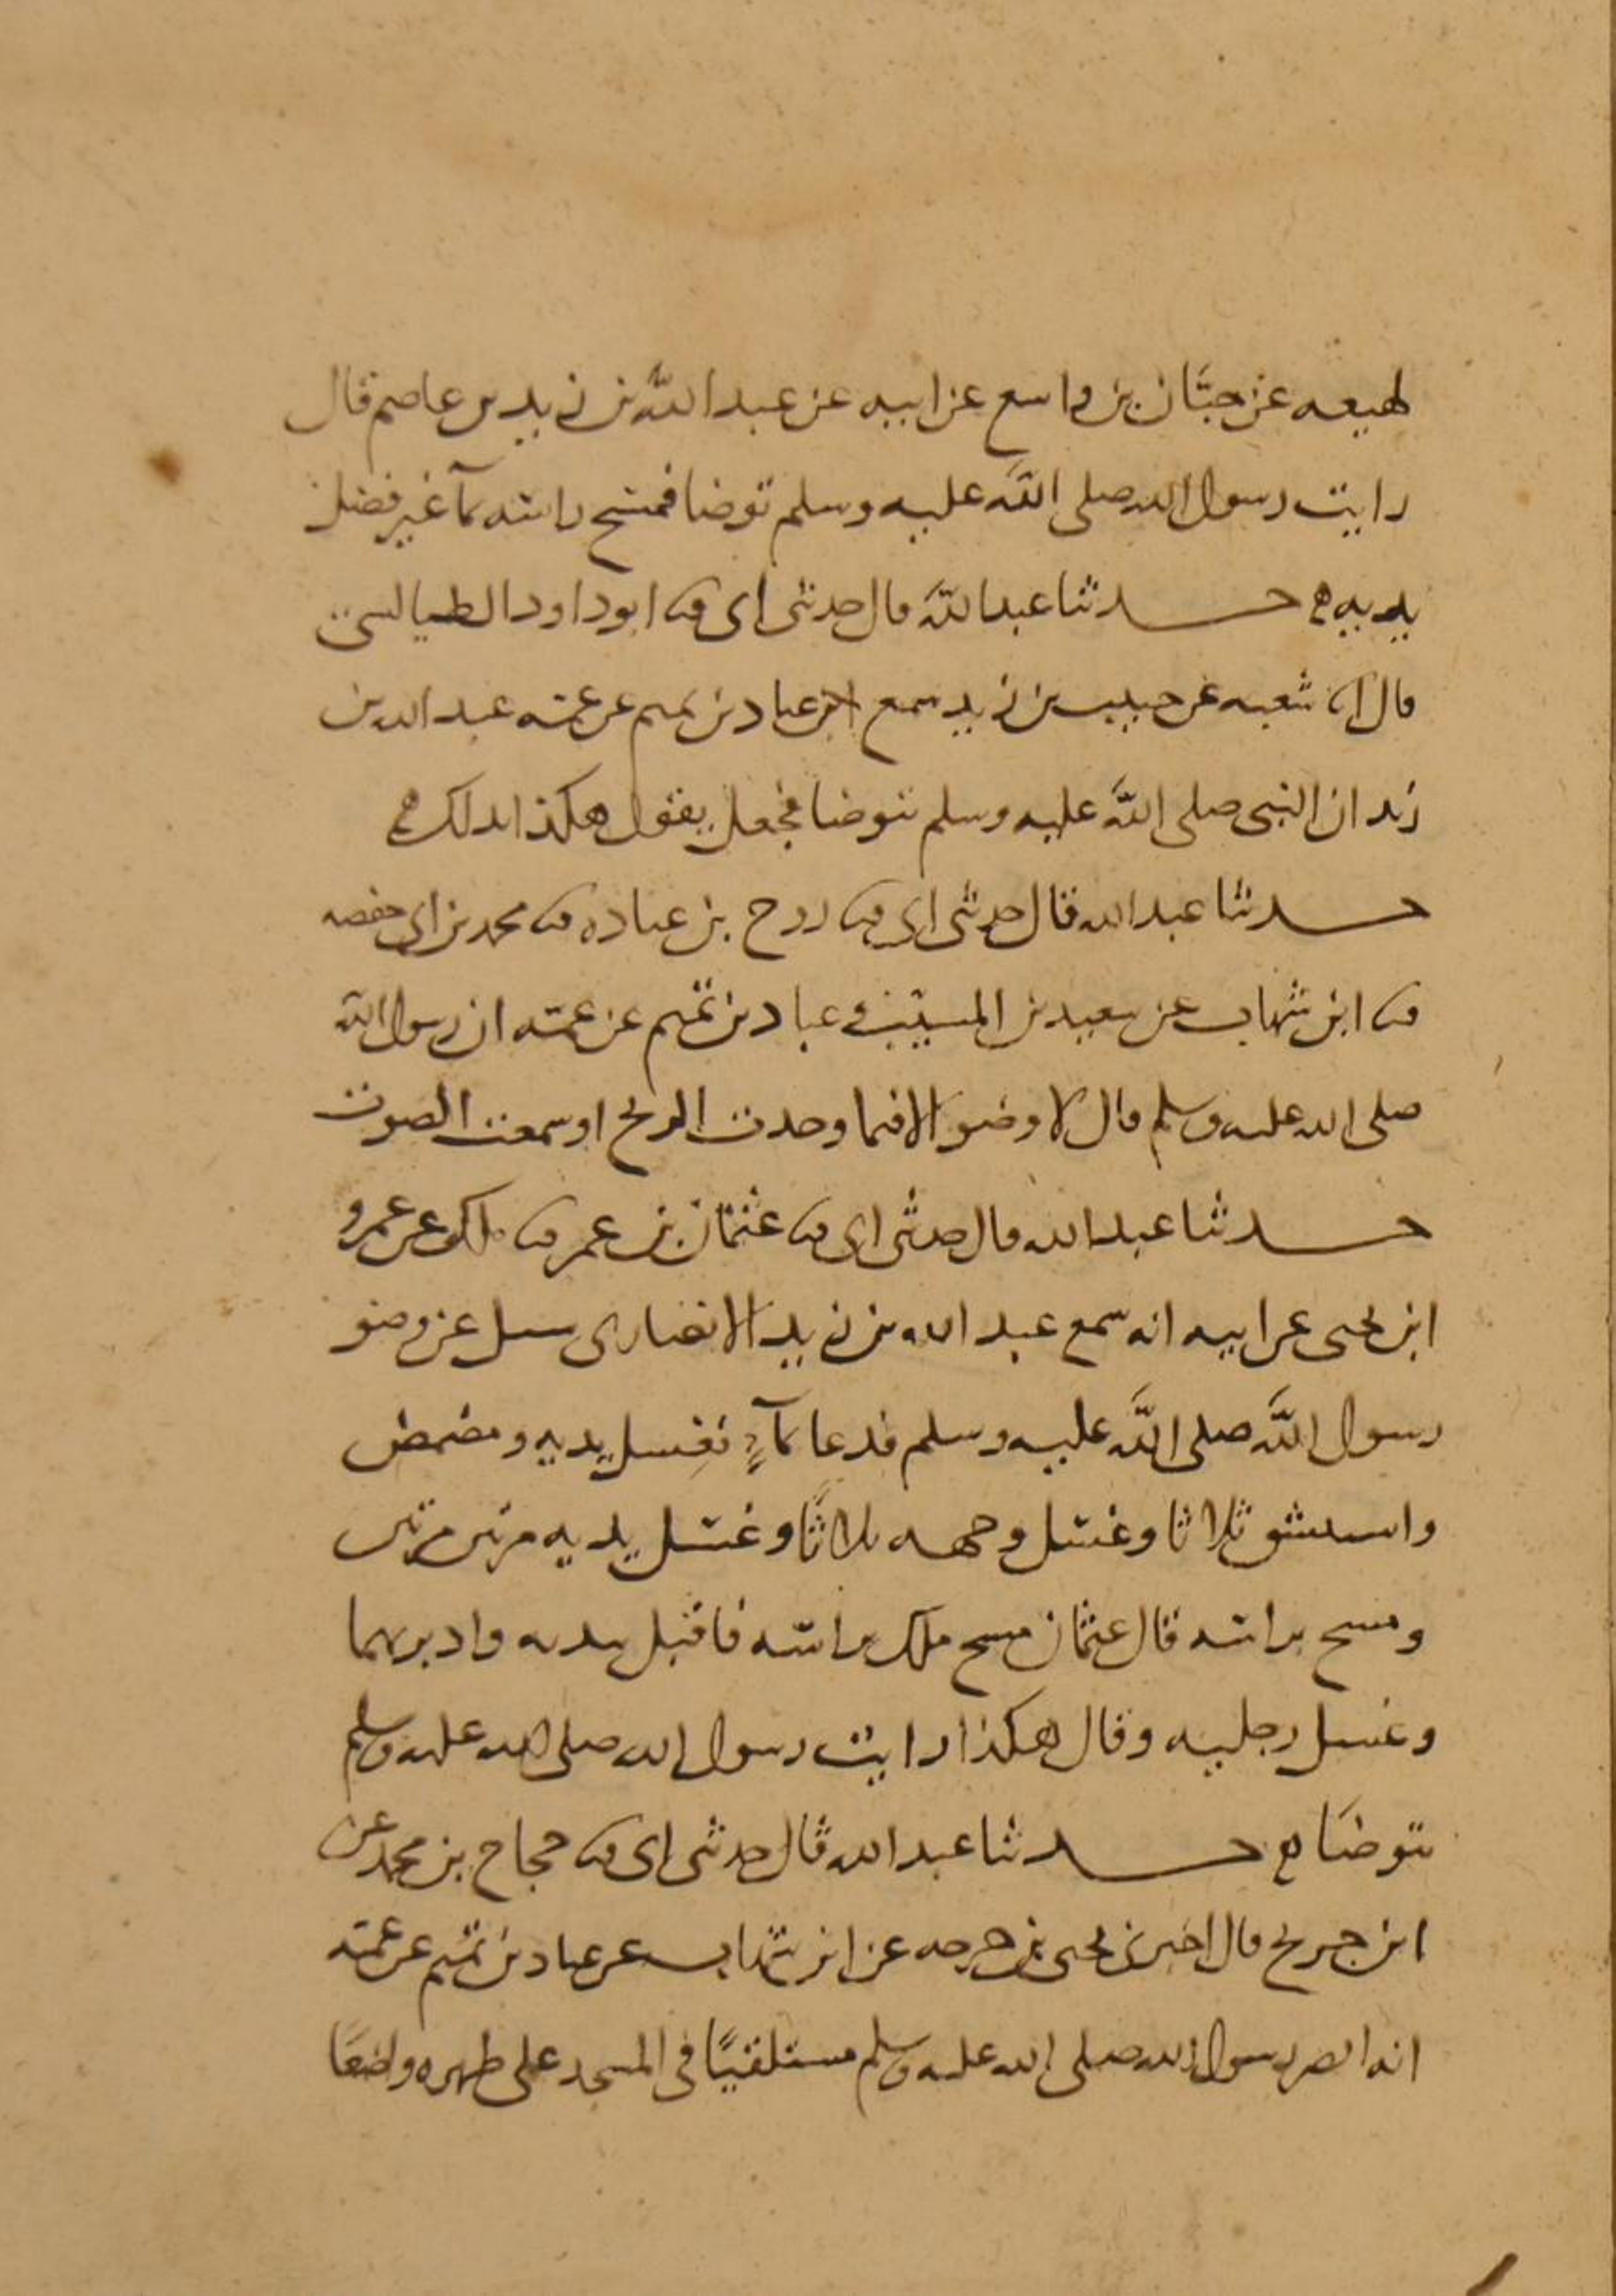 لهيعه عن حبَّان بن واسع عن ابيه عن عبد الله بن زيد بن عاصم قال
رايت رسول الله صلى الله عليه وسلم توضا فمسح راسه بمآ غير فضل
يديه حدثنا عبد الله قال حدثني ابي ثنا ابو داود الطيالسي
قال انا شعبه عن حبيب بن زيد سمع عباد بن تميم عن عمه عبد الله بن
زيد ان النبي صلى الله عليه وسلم توضا فجعل يقول هكذا يدلك
حدثنا عبد الله قال حدثني ابي ثنا روح بن عباده ثنا محمد بن ابي حفصه
ثنا ابن شهاب عن سعيد بن المسيب وعباد بن تميم عن عمه ان رسول الله
صلى الله عليه وسلم قال لا وضو الا فيما وجدت الريح او سمعت الصوت
حدثنا عبد الله قال حدثني ابي ثنا عثمان بن عمر ثنا ملك عن عمرو
ابن يحيى عن ابيه انه سمع عبد الله بن زيد الانصاري سيل عن وضو
رسول الله صلى الله عليه وسلم فدعا بمآءٍ فغسل يديه ومضمض
واستنشق ثلاثا وغسل وجهه ثلاثًا وغسل يديه مرتين مرتين
ومسح براسه قال عثمان مسح ملك براسه فاقبل بيديه وادبر بهما
وغسل رجليه وقال هكذا رايت رسول الله صلى الله عليه وسلم
يتوضا حدثنا عبد الله قال حدثني ابي ثنا حجاج بن محمد عن
ابن جريج قال اخبرني يحيى بن جرجه عن ابن شهاب عن عباد بن تميم عن عمه
انه ابصر رسول الله صلى الله عليه وسلم مستلقيًا في المسجد على ظهره واضعًا